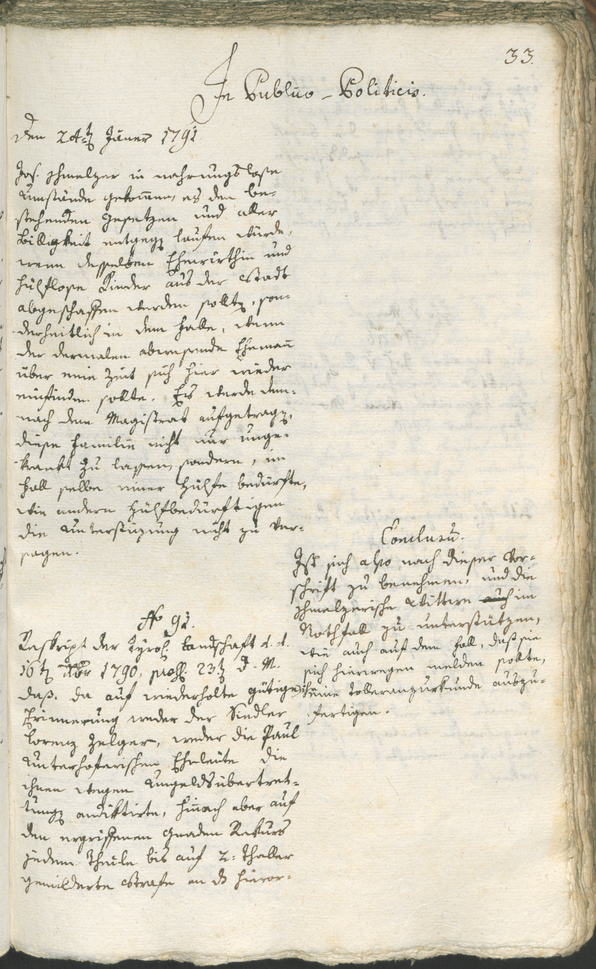 33.
In Publico-Politicis.
den 24t Jäner 1791
Jos. Schmelzer in nahrungslose
Umstände gekommen, es den be-
stehenden Gesetzen und aller
Billigkeit entgegen laufen würde,
wenn desselben Ehewirthin und
hülflose Kinder aus der Stadt
abgeschaffen werden sollten, son-
derheitlich in dem Falle, wenn
der dermalen abwesende Ehemann
über eine Zeit sich hier wieder
einfinden sollte. Es werde dem-
nach dem Magistrat aufgetragen,
diese Familie nicht nur unge-
kränkt zu lassen, sondern, im
Fall selbe einer Hülfe bedürfte,
wie andern Hülfbedürftigen
die Unterstützung nicht zu ver-
sagen.
Conclusum.
Ist sich also nach dieser Vor-
schrift zu benehmen, und die
Schmelzerische Wittwe im
Nothfall zu unterstützen,
wie auch auf dem Fall, daß sie
sich hierwegen melden sollte,
eine Toleranzurkunde auszu-
fertigen.
No 91.
Reskript der Tyrol. Landschaft d. d.
16t Xbr 1790, 23t d. M.
daß, da auf wiederholte gütige
Erinnerung weder der Siedler
Lorenz Zelger, weder die Paul
Unterhoferischen Eheleute die
ihnen wegen Umgeldsübertret-
tung andiktirte, hinach aber auf
den ergriffenen Gnaden Rekurs
jedem Theile bis auf 2: Thaller
gemilderte Strafe an das hieror-